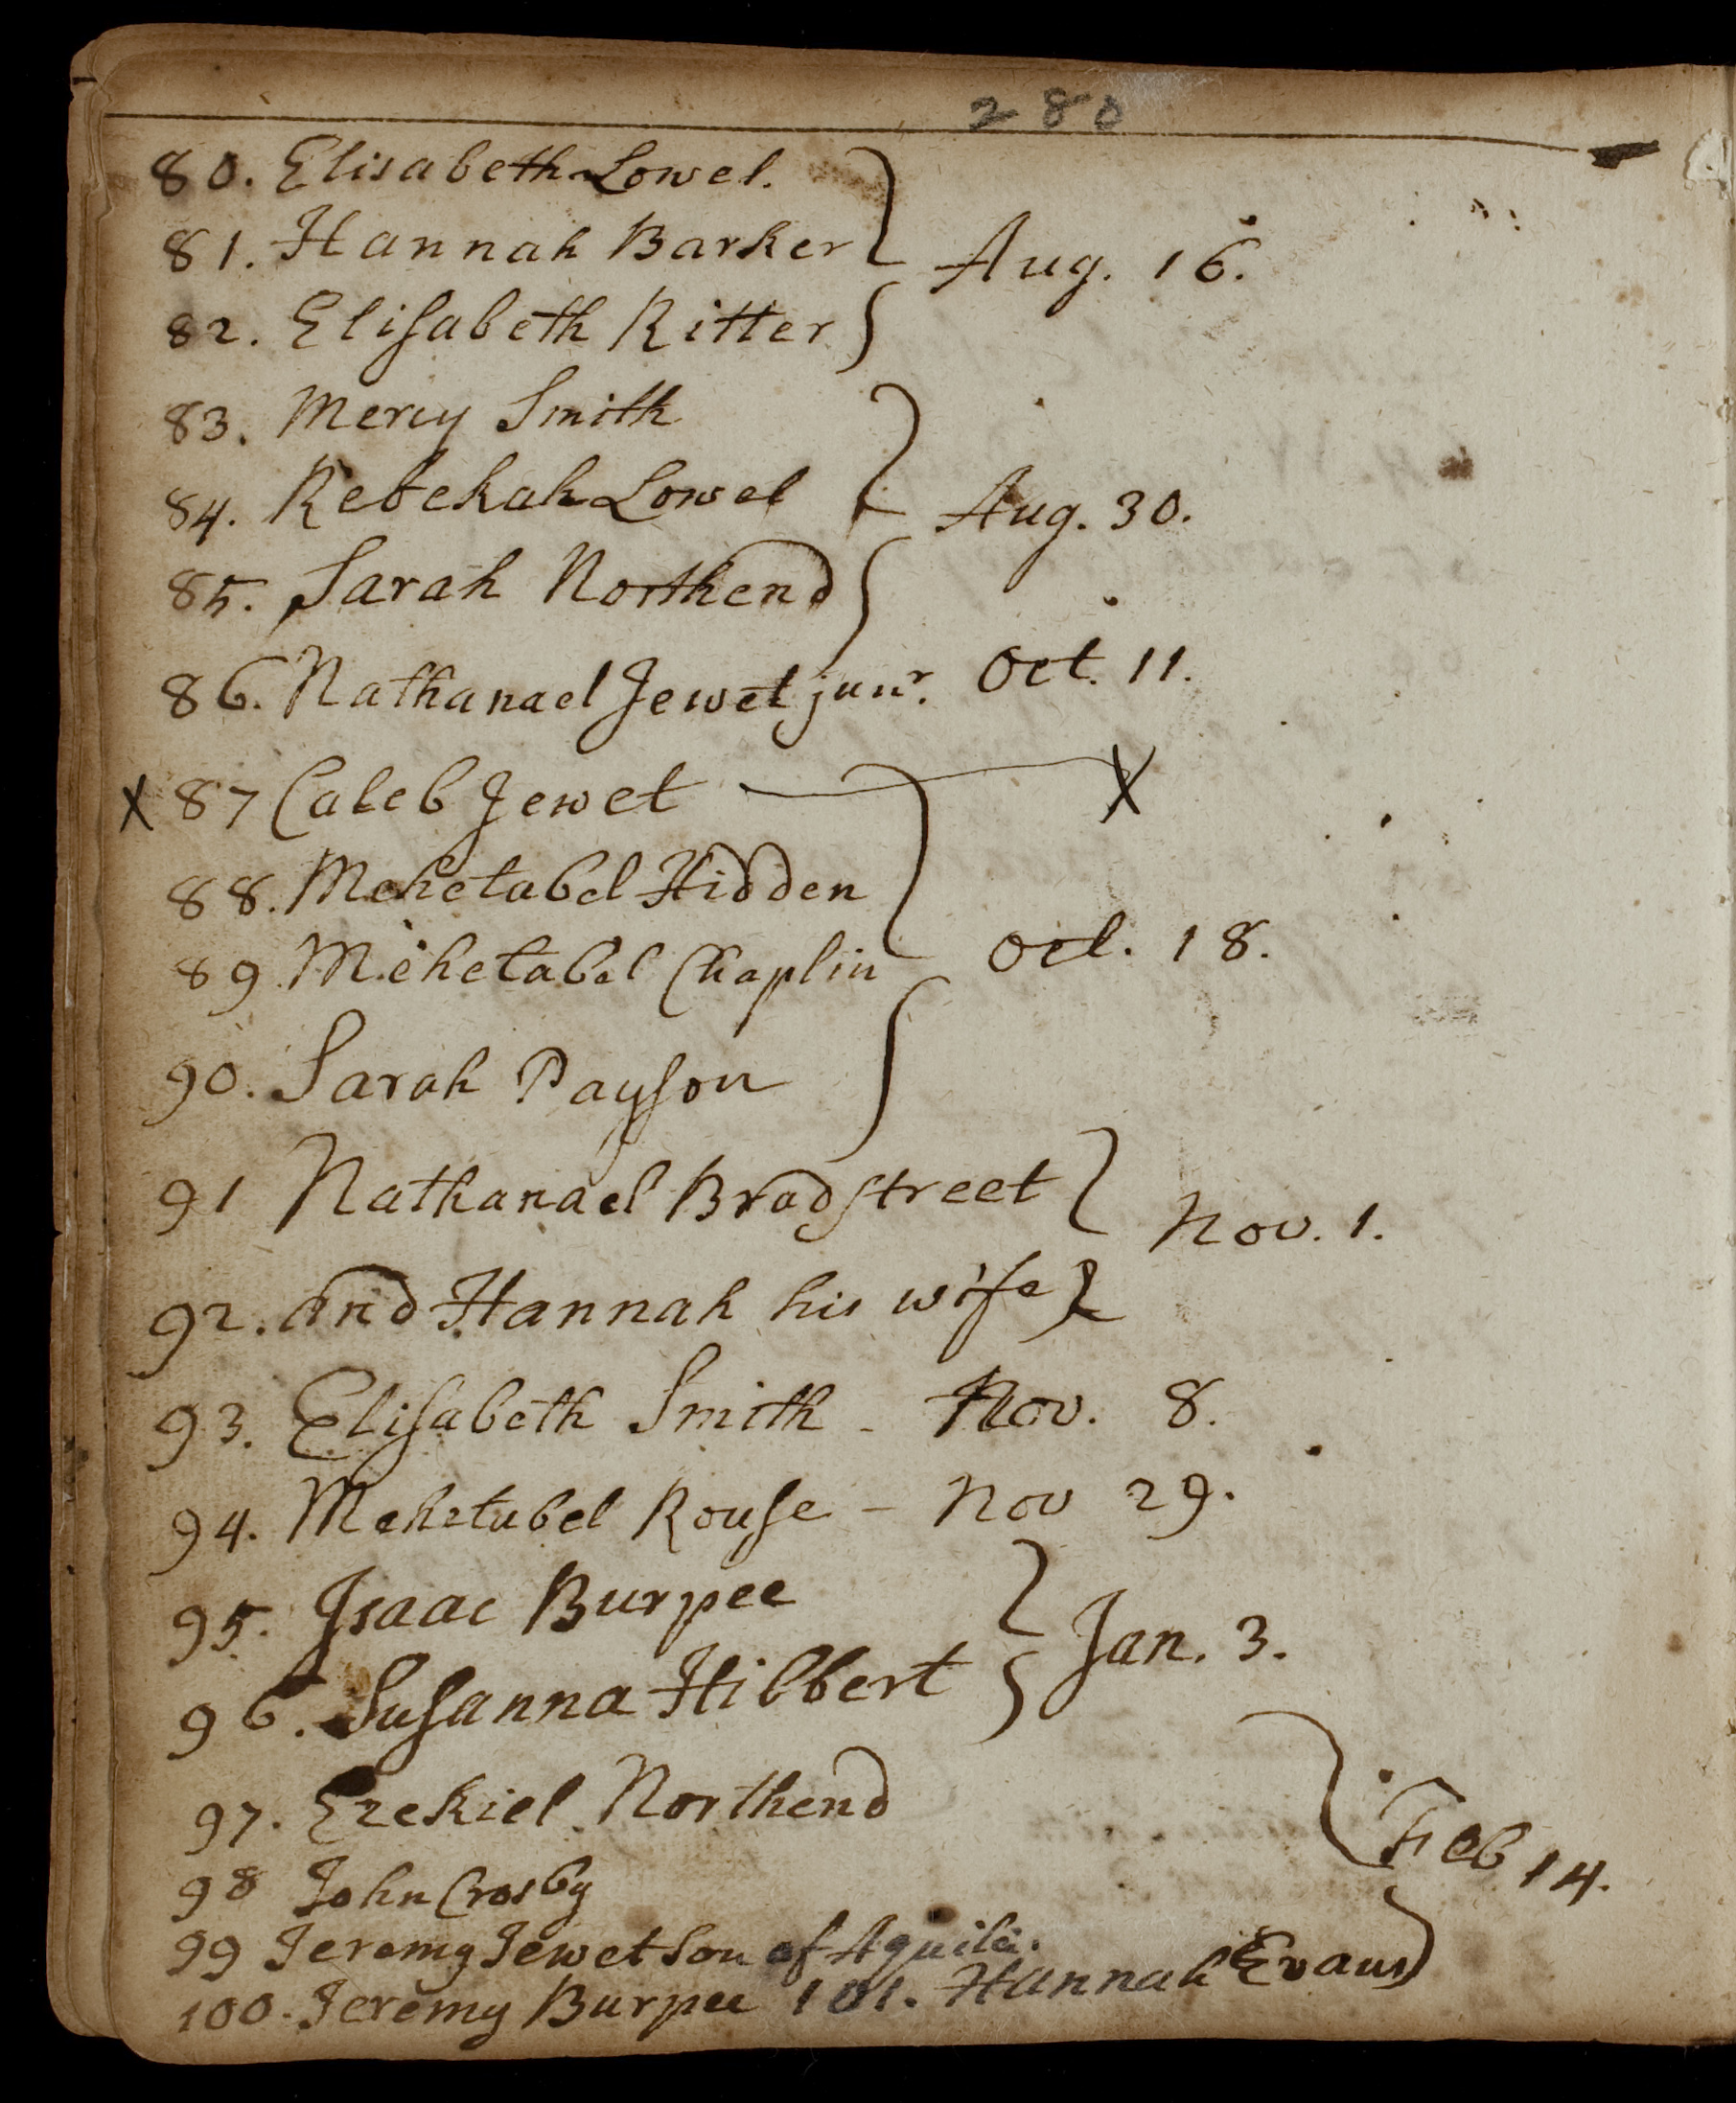 280
80. Elisabeth Lowel.
81. Hannah Barker
Aug. 16.
82. Elisabeth Ritter
83. Mercy Smith
84. Rebekah Lowel
Aug. 30.
85. Sarah Northend
86. Nathanael Jewet junr. Oct. 11.
X 87 Caleb Jewet — X
88. Mehetabel Hidden
89. Mehetabel Chaplin Oct. 18.
90. Sarah Payson
91 Nathanael Bradstreet
Nov. 1.
92. And Hannah his wife
93. Elisabeth Smith - Nov. 8.
94. Mehetabel Rouse - Nov 29.
95. Isaac Burpee
Jan. 3.
96. Susanna Hibbert
97. Ezekiel Northend
Feb 14.
98 John Crosby
99 Jeremy Jewet son of Aquila.
100. Jeremy Burpee 101. Hannah Evans